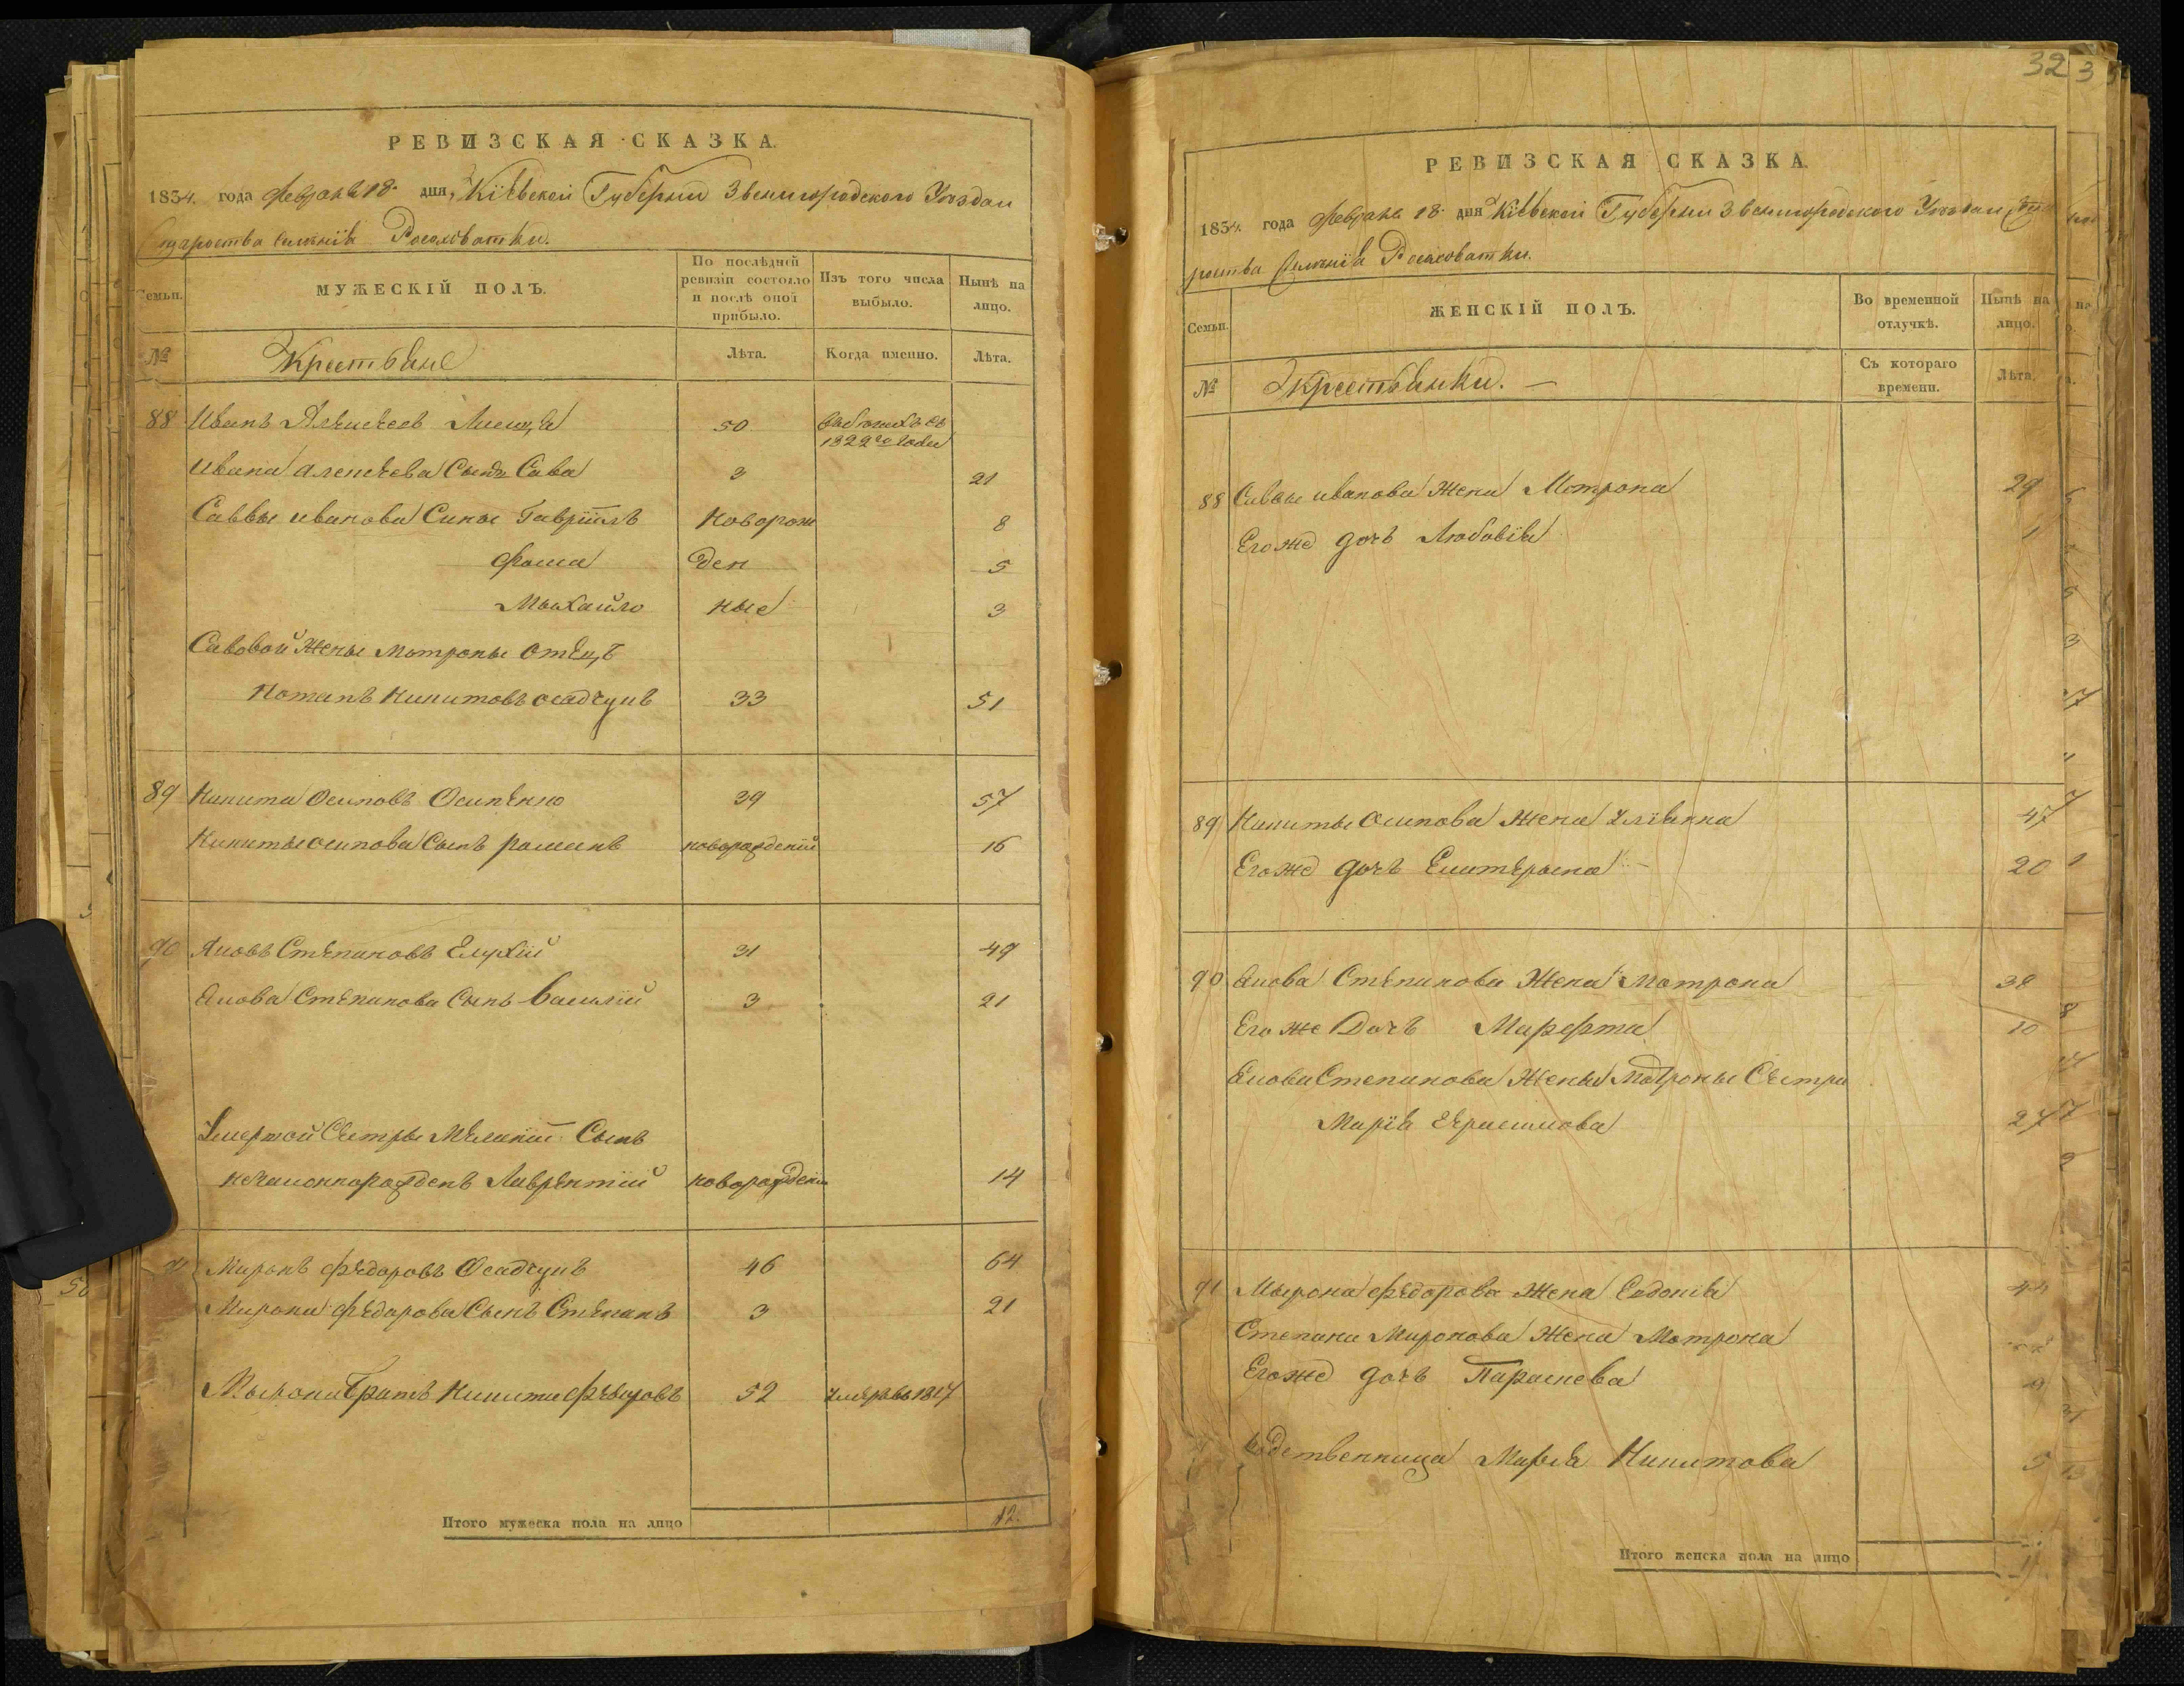 РЕВИЗСКАЯ СКАЗКА.
1834. года февраля 18. дня, Кіевской Губерніи Звенигородского Уезда
Староства селенія Росоховатки.
Семьи.
МУЖЕСКІЙ ПОЛЪ.
По послѣдней ревизіи состояло и послѣ оной прибыло.
Изъ того числа выбыло.
Нынѣ на лицо.
№
Крестьяне
Лѣта.
Когда именно.
Лѣта.
88 Иванъ Алексеевъ 50 в бегахъ съ
1822го года
Ивана Алексеева Сынъ Сава 3 21
Саввы иванова Сины Гавріилъ Новорож 8
Фома ден 5
Мыхайло ные 3
Савовой Жены мотроны отецъ
Потапъ Никитовъ осадчукъ 33 51
89 Никита Осиповъ Осипенко 39 57
Никиты осипова Сынъ романъ новорожденій 16
90 Яковъ Степановъ 31 49
Якова Степанова Сынъ Василій 3 21
Умершой Сестры Меланіи Сынъ
незаконнорожденъ Лаврентій новорожденъ 14
91 Миронъ федоровъ Осадчукъ 46 64
Мирона федорова Сынъ Степанъ 3 21
Мырона братъ Никита федоровъ 52 умеръ въ 1817
Итого мужеска пола на лицо 12.
32 3
РЕВИЗСКАЯ СКАЗКА
1834. года февраля 18. дня Кіевской Губерніи Звенигородского Уезда Ста
роства Селенія Росоховатки.
Семьи.
ЖЕНСКІЙ ПОЛЪ.
Во временной отлучкѣ.
Нынѣ на лицо.
№
крестьянки. —
Съ котораго времени.
Лѣта.
88 Саввы иванова Жена Мотрона 29
Его же дочъ Любовія 1
89 Никиты осипова Жена Уліянна 47
Его же дочъ Екатерына 20
90 Якова Степанова Жена Мотрона 38
Его же Дочъ Марфта 10
Якова Степанова Жены Мотроны Сестра
Марія Герасимова 27
91 Мырона федорова Жена Евдокія 44
Степана Миронова Жена Мотрона
Его же дочъ Параскева
родственница Марія Никитова 5
Итого женска пола на лицо